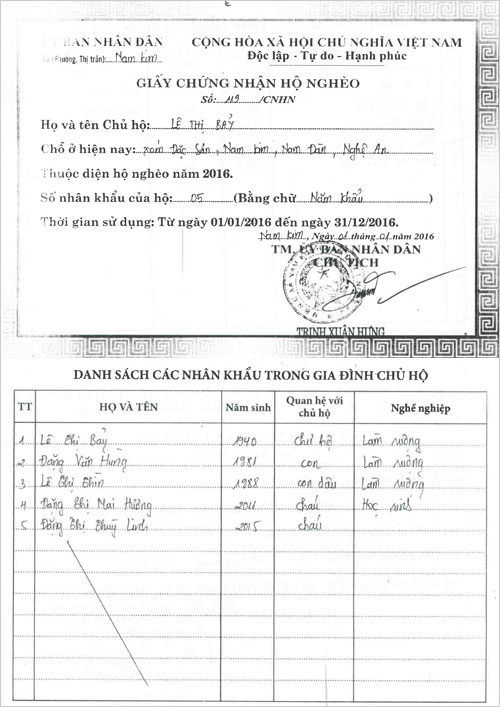 ỦY BAN NHÂN DÂN
CỘNG HÒA XÃ HỘI CHỦ NGHĨA VIỆT NAM
Xã (Phường, Thị trấn): Nam Kim
Độc lập - Tự do - Hạnh phúc
GIẤY CHỨNG NHẬN HỘ NGHÈO
Số: 119 /CNHN
Họ và tên Chủ hộ: LÊ THỊ BẢY
Chỗ ở hiện nay: xóm Đặc Sản, Nam Kim, Nam Đàn, Nghệ An.
Thuộc diện hộ nghèo năm 2016.
Số nhân khẩu của hộ: 05 (Bằng chữ Năm khẩu)
Thời gian sử dụng: Từ ngày 01/01/2016 đến ngày 31/12/2016.
Nam Kim, Ngày 01 tháng 01 năm 2016
TM. ỦY BAN NHÂN DÂN
CHỦ TỊCH
TRỊNH XUÂN HƯNG
DANH SÁCH CÁC NHÂN KHẨU TRONG GIA ĐÌNH CHỦ HỘ
TT HỌ VÀ TÊN Năm sinh Quan hệ với chủ hộ Nghề nghiệp
1 Lê Thị Bảy 1940 chủ hộ Làm ruộng
2 Đặng Văn Hùng 1981 con Làm ruộng
3 Lê Thị Thìn 1988 con dâu Làm ruộng
4 Đặng Thị Mai Hương 2011 cháu Học sinh
5 Đặng Thị Thuỳ Linh 2015 cháu